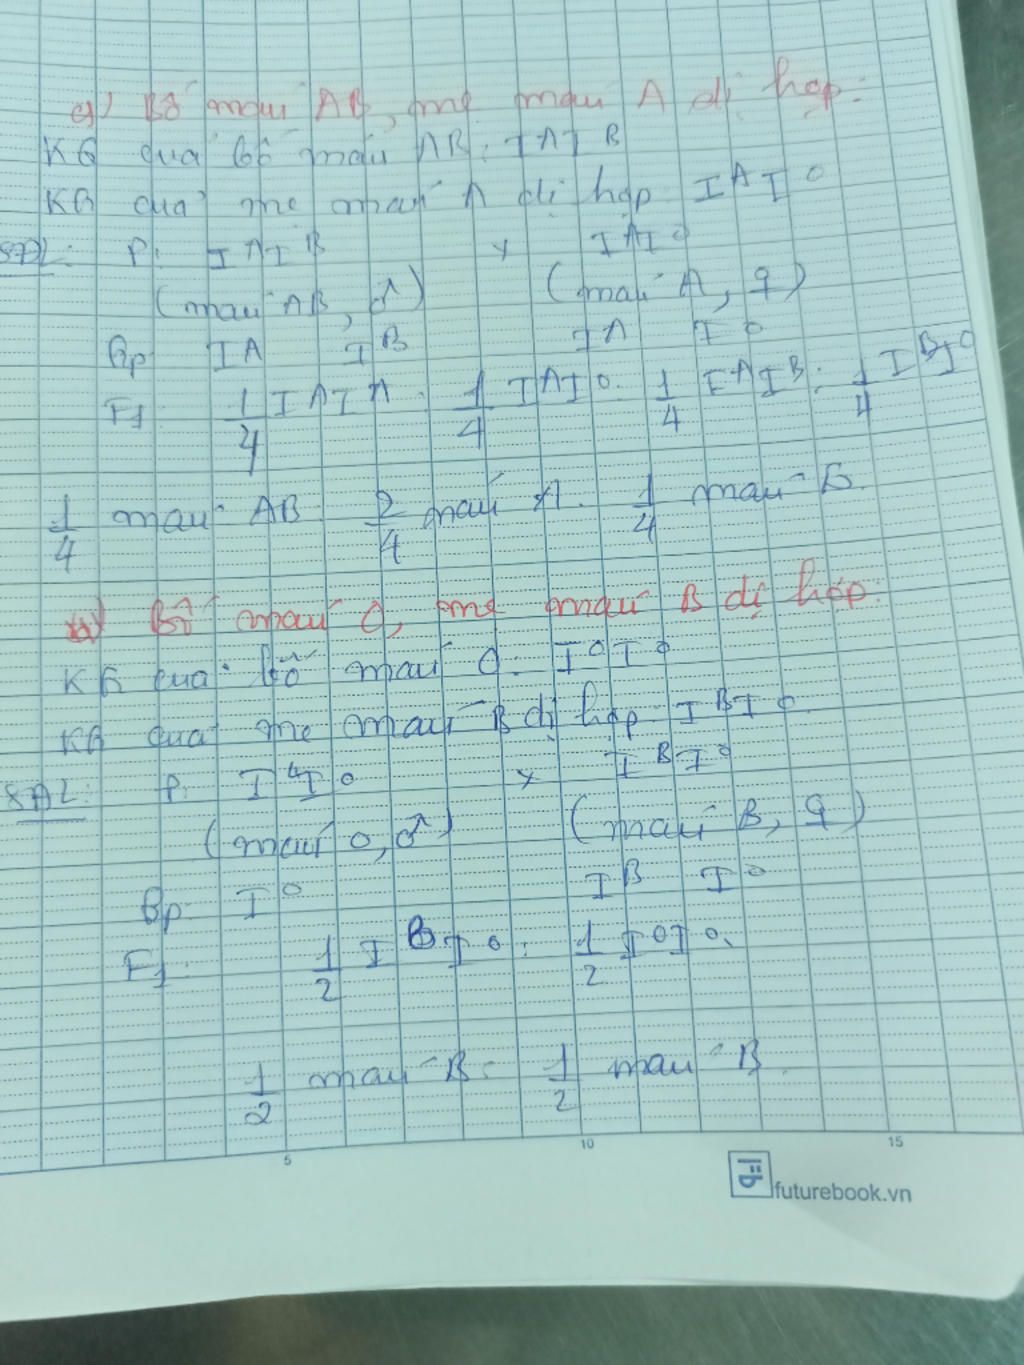 a) Bố máu AB, mẹ máu A dị hợp:
KG của bố máu AB: IAIB
KG của mẹ máu A dị hợp IAIO
SĐL: P: IAIB x IAIO
(máu AB, ♂) (máu A, ♀)
Gp IA IB IA IO
F1 1/4 IAIA : 1/4 IAIO : 1/4 IAIB : 1/4 IBIO
1/4 máu AB 2/4 máu A. 1/4 máu B.
Bố máu O, mẹ máu B dị hợp:
KG của bố máu O: IOIO
KG của mẹ máu B dị hợp IBIO
SĐL: P: IO x IBIO
(máu O, ♂) (máu B, ♀)
Gp IO IB IO
F1: 1/2 IBIO : 1/2 IOIO.
1/2 máu B : 1/2 máu B.
5 10 15
futurebook.vn